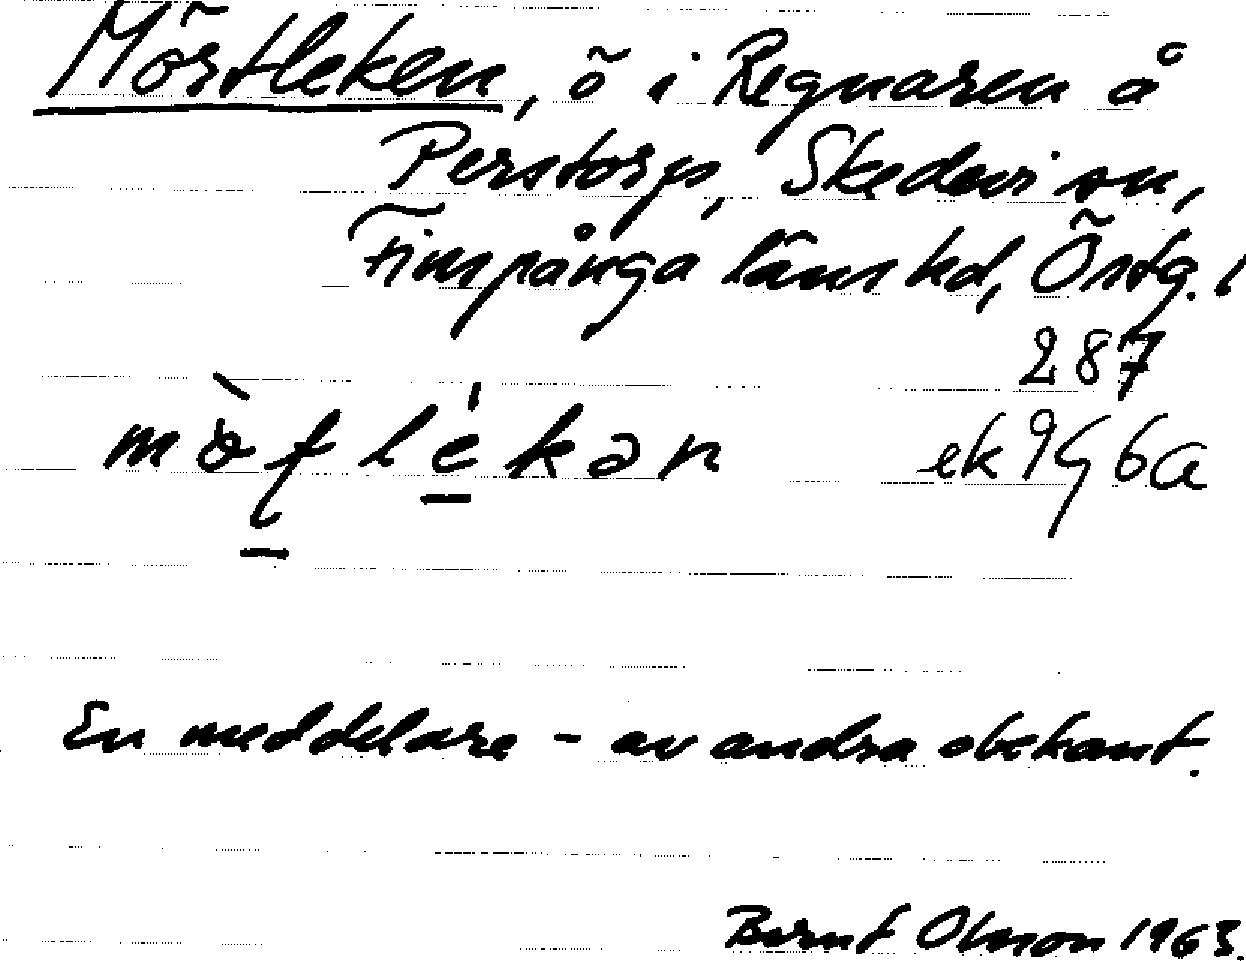 Mörtleken, ö i Regnaren å
Perstorp, Skedevi sn,
Finspånga läns hd, Östg. l
287
ek 9G6a
En meddelare - av andra obekant.
Bernt Olsson 1963.